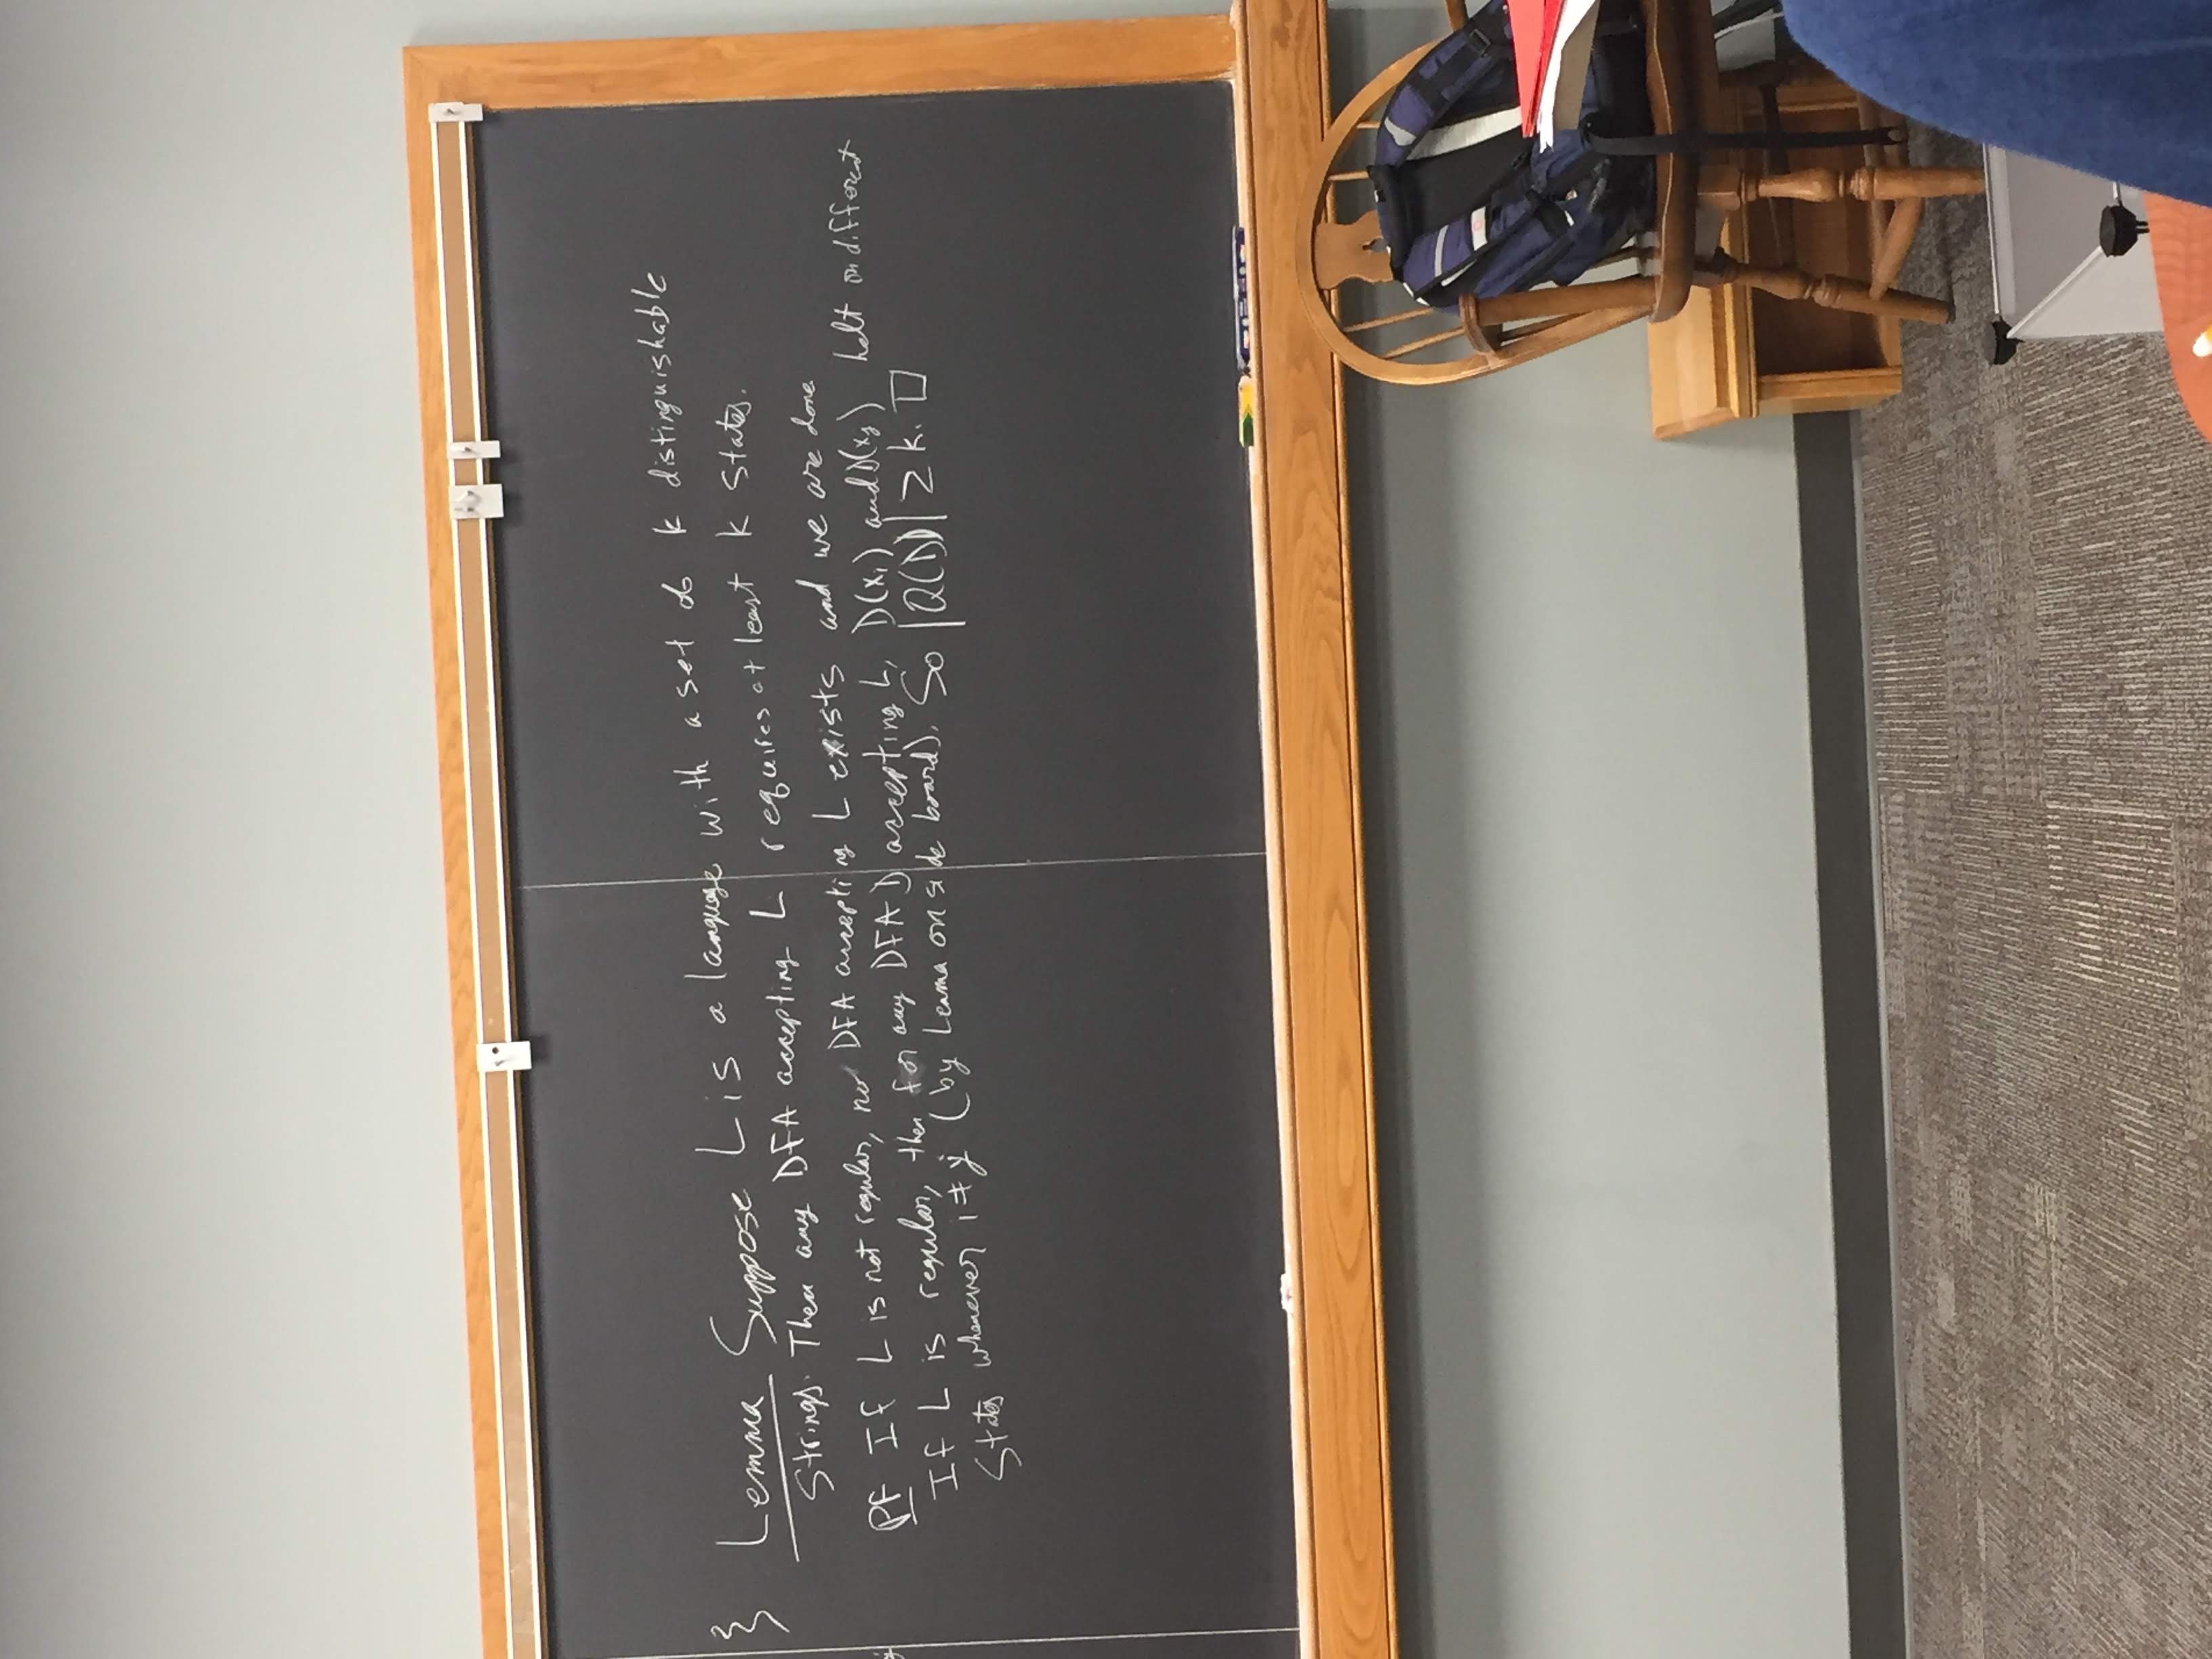 }
Lemma Suppose L is a language with a set of k distinguishable
Strings. Then any DFA accepting L requires at least k States.
Pf If L is not regular, no DFA accepting L exists and we are done
If L is regular, then for any DFA D accepting L, D(xi) and D(xj) halt on different
States whenever i≠j (by Lemma on side board). So |Q(D)| ≥ k. □